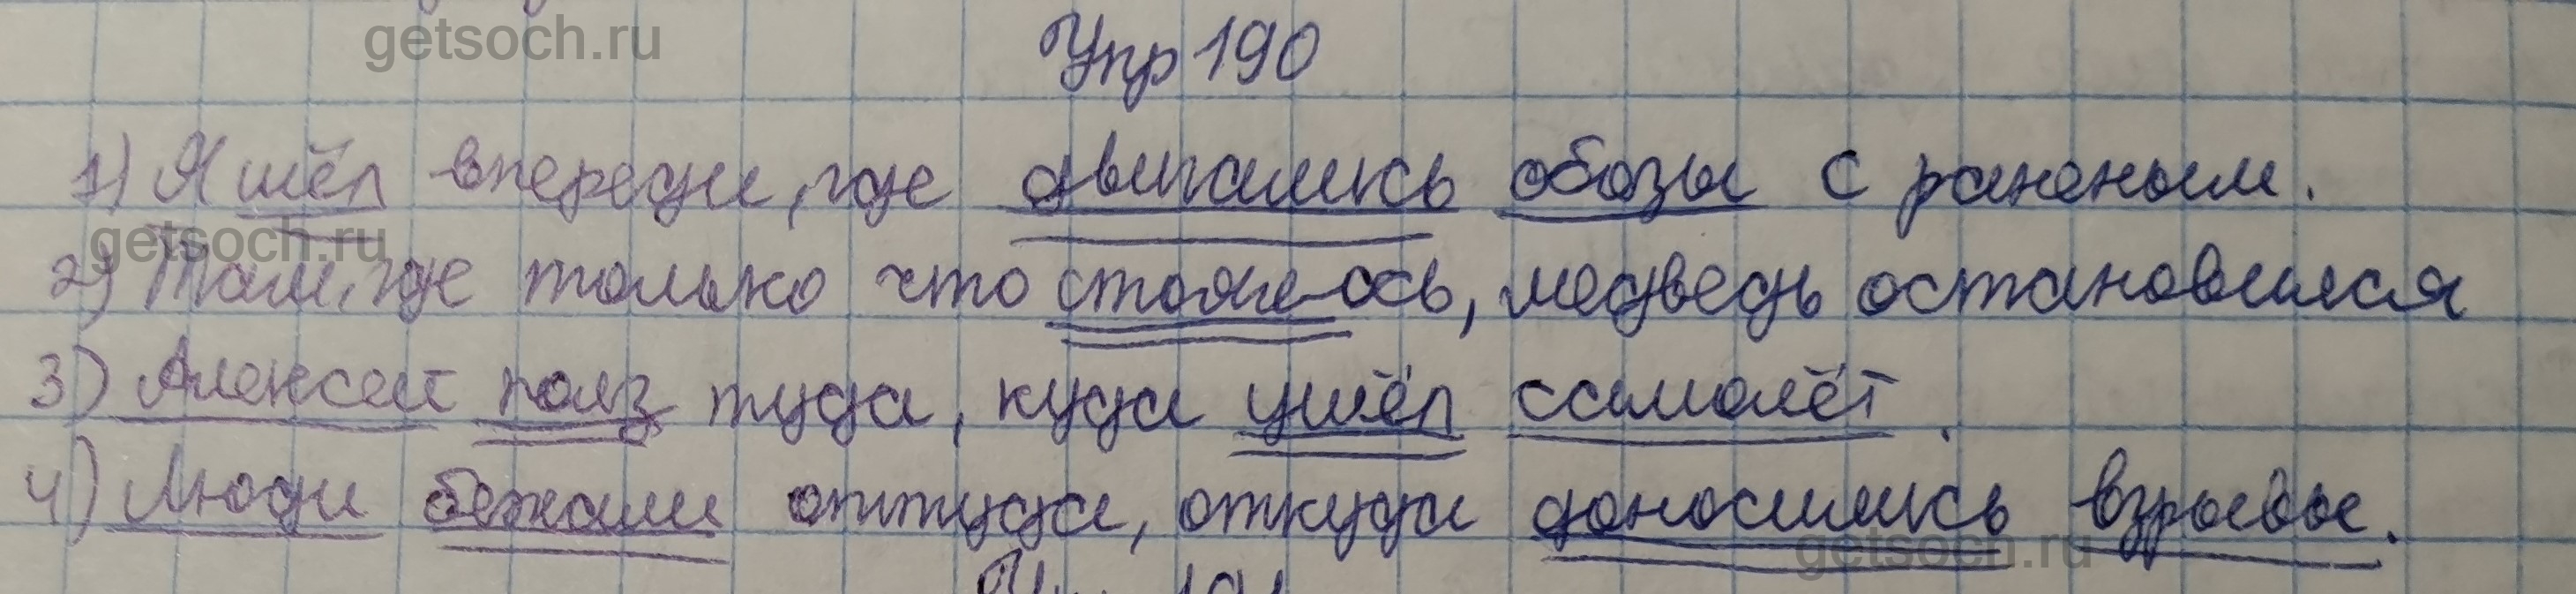 getsoch.ru
Упр 190
1) Я шёл впереди, где двигались обозы с раненым.
getsoch.ru
2) Там, где только что стояло ось, медведь остановился
3) Алексей полз туда, куда ушёл самолёт.
4) Люди бежали оттуда, откуда доносились взрывы.
getsoch.ru